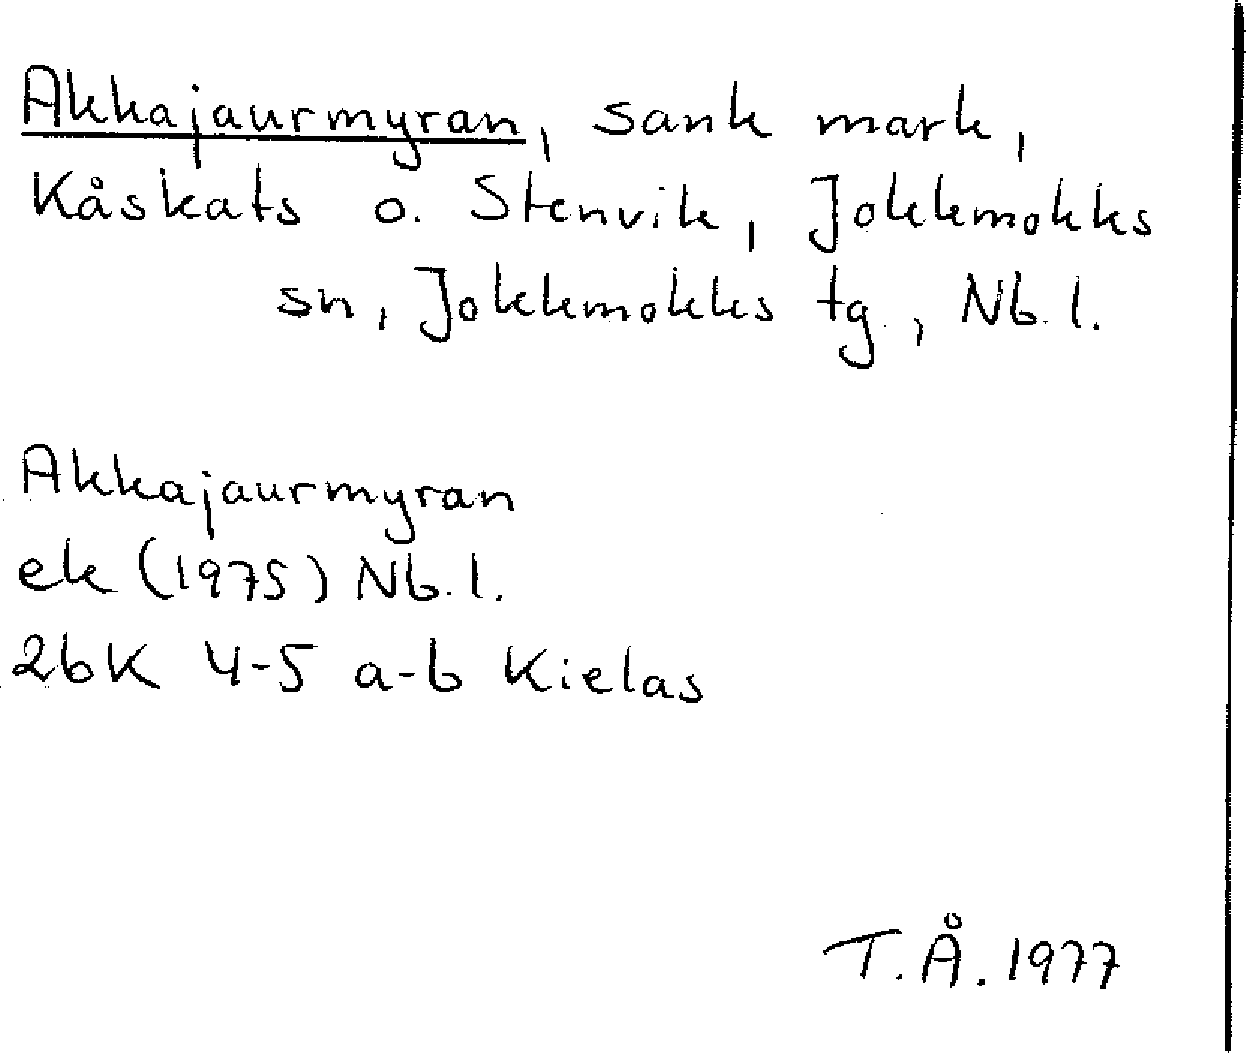 Akkajaurmyran, sank mark,
Kåskats o. Stenvik, Jokkmokks
sn, Jokkmokks tg., Nb. l.
Akkajaurmyran
ek (1975) Nb. l.
26K 4-5 a-b Kielas
T.Å. 1977